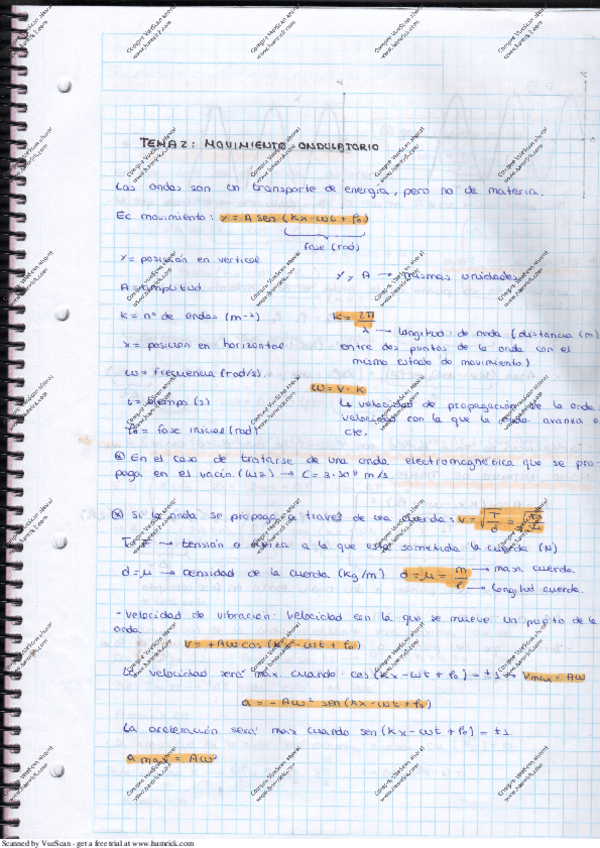 TEMA 2: MOVIMIENTO ONDULATORIO
Las ondas son un transporte de energía, pero no de materia.
Ec movimiento: y = A sen (kx - ωt + φ₀)
fase (rad)
Y = posición en vertical
Y, A → mismas unidades
A = amplitud
k = nº de ondas (m⁻¹)
k = 2π/λ → longitud de onda (distancia (m)
x = posición en horizontal
entre dos puntos de la onda con el
mismo estado de movimiento)
ω = frecuencia (rad/s).
ω = v · k
t = tiempo (s)
↳ velocidad de propagación de la onda.
velocidad con la que la onda avanza
φ₀ = fase inicial (rad)
cte.
En el caso de tratarse de una onda electromagnética que se pro-
paga en el vacío. (luz) → c = 3·10⁸ m/s.
Si la onda se propaga a través de una cuerda: v = √T/d
→ tensión o fuerza a la que está sometida la cuerda (N)
d = μ → densidad de la cuerda (kg/m) d = μ = m/l → masa cuerda.
→ longitud cuerda.
- Velocidad de vibración: velocidad con la que se mueve un punto de la
onda.
v = +Aω cos (kx - ωt + φ₀)
La velocidad será máx. cuando cos (kx - ωt + φ₀) = ±1 → Vmax = Aω
a = -Aω² sen (kx - ωt + φ₀)
La aceleración será max cuando sen (kx - ωt + φ₀) = ±1.
a max = Aω²
Compre VueScan ahora!
www.hamrick.com
Scanned by VueScan - get a free trial at www.hamrick.com